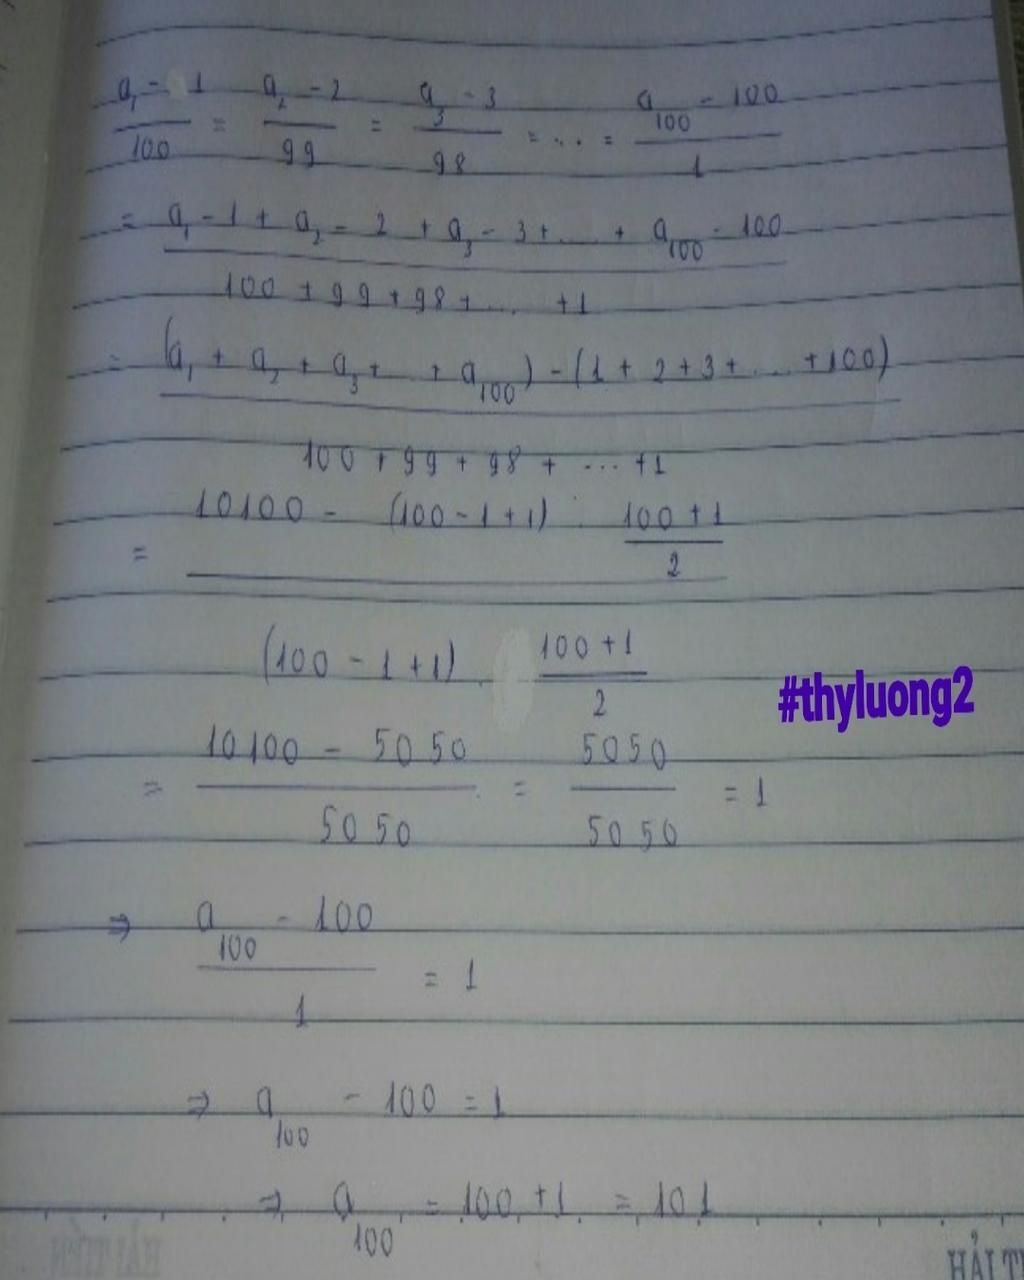 a₁ - 1 / 100 = a₂ - 2 / 99 = a₃ - 3 / 98 = ... = a₁₀₀ - 100 / 1
= a₁ - 1 + a₂ - 2 + a₃ - 3 + .... + a₁₀₀ - 100 / 100 + 99 + 98 + .... + 1
= (a₁ + a₂ + a₃ + ... + a₁₀₀) - (1 + 2 + 3 + ... + 100) / 100 + 99 + 98 + ... + 1
= 10100 - (100 - 1 + 1) . 100 + 1 / 2 / (100 - 1 + 1) . 100 + 1 / 2
#thyluong2
= 10100 - 5050 / 5050 = 5050 / 5050 = 1
⇒ a₁₀₀ - 100 / 1 = 1
⇒ a₁₀₀ - 100 = 1
⇒ a₁₀₀ = 100 + 1 = 101
HẢI